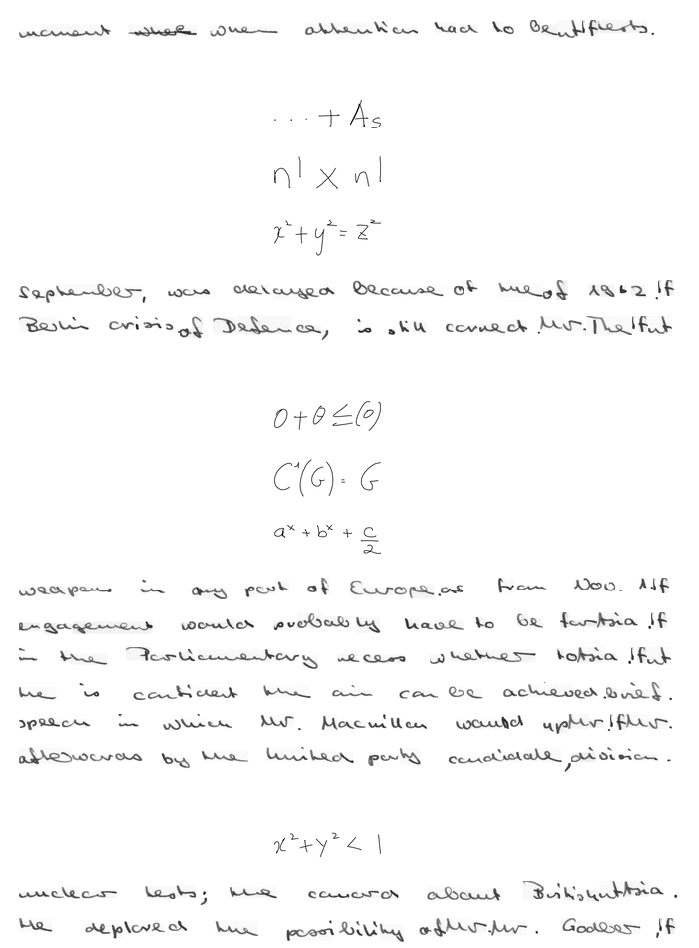 moment when attention had to
... + A_s
n! × n!
x² + y² = z²
September, was delayed because of of 1962 .If
Berlin crisis of Defence, is still correct .Mr. The
0 + θ ≤ (0)
C¹(G) = G
a^x + b^x + c/2
weapons in any part of Europe.as from Nov. 1
engagement would probably have to be
in the Parliamentary recess whether
he is confident the aim can be achieved.brief.
speech in which Mr. Macmillan would
afterwards by the United party candidate,division.
x² + y² < 1
nuclear tests; the about
He deplored the possibility of Mr.Mr. Godber ,If